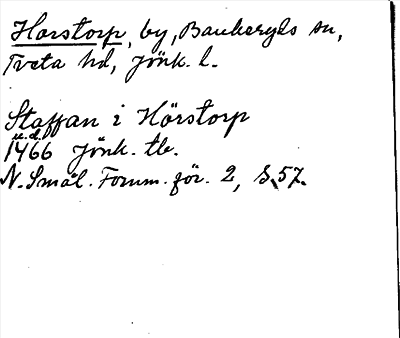 Horstorp, by, Bankeryds sn,
Tveta hd, Jönk. l.
Staffan i Hörstorp
u.d.
1466 Jönk. tb.
N. Smål. Fornm. för. 2, S. 57.